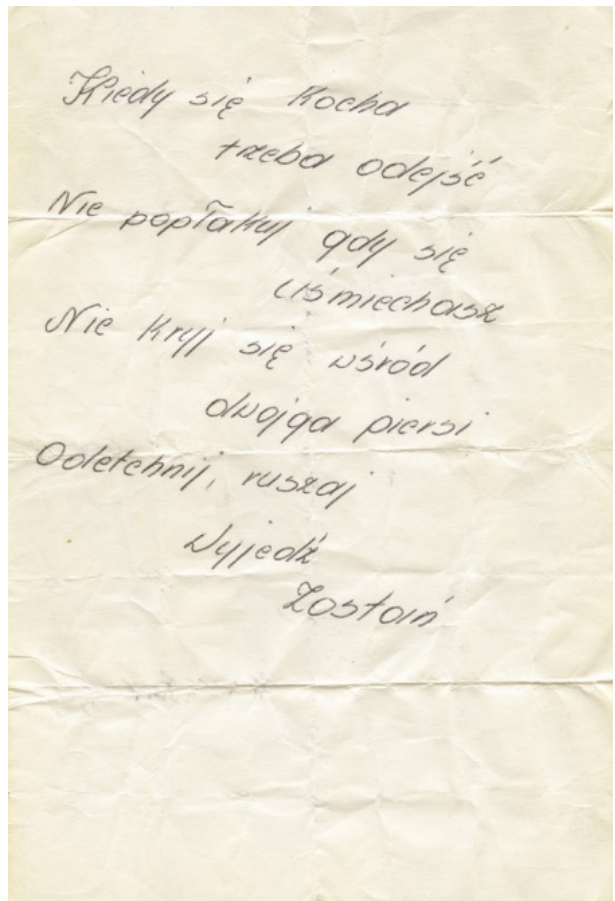 Kiedy się kocha
trzeba odejść
Nie popłakuj gdy się
uśmiechasz
Nie kryj się wśród
dwojga piersi
Odetchnij, ruszaj
Wyjedź
Zostań